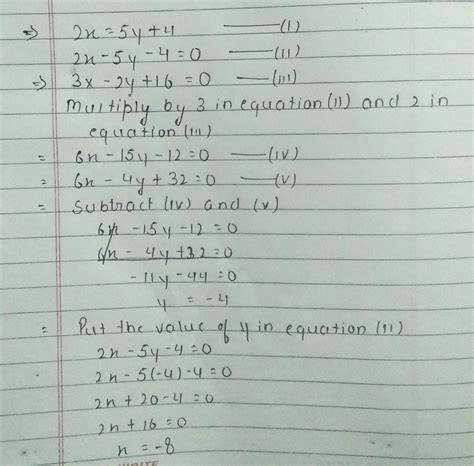 ⇒ 2x = 5y + 4 —— (I)
2x - 5y - 4 = 0 —— (II)
⇒ 3x - 2y + 16 = 0 —— (III)
Multiply by 3 in equation (II) and 2 in
equation (III)
= 6x - 15y - 12 = 0 —— (IV)
= 6x - 4y + 32 = 0 —— (V)
= Subtract (IV) and (V)
6x - 15y - 12 = 0
6x - 4y + 32 = 0
-11y - 44 = 0
y = -4
= Put the value of y in equation (II)
2x - 5y - 4 = 0
2x - 5(-4) - 4 = 0
2x + 20 - 4 = 0
2x + 16 = 0
x = -8